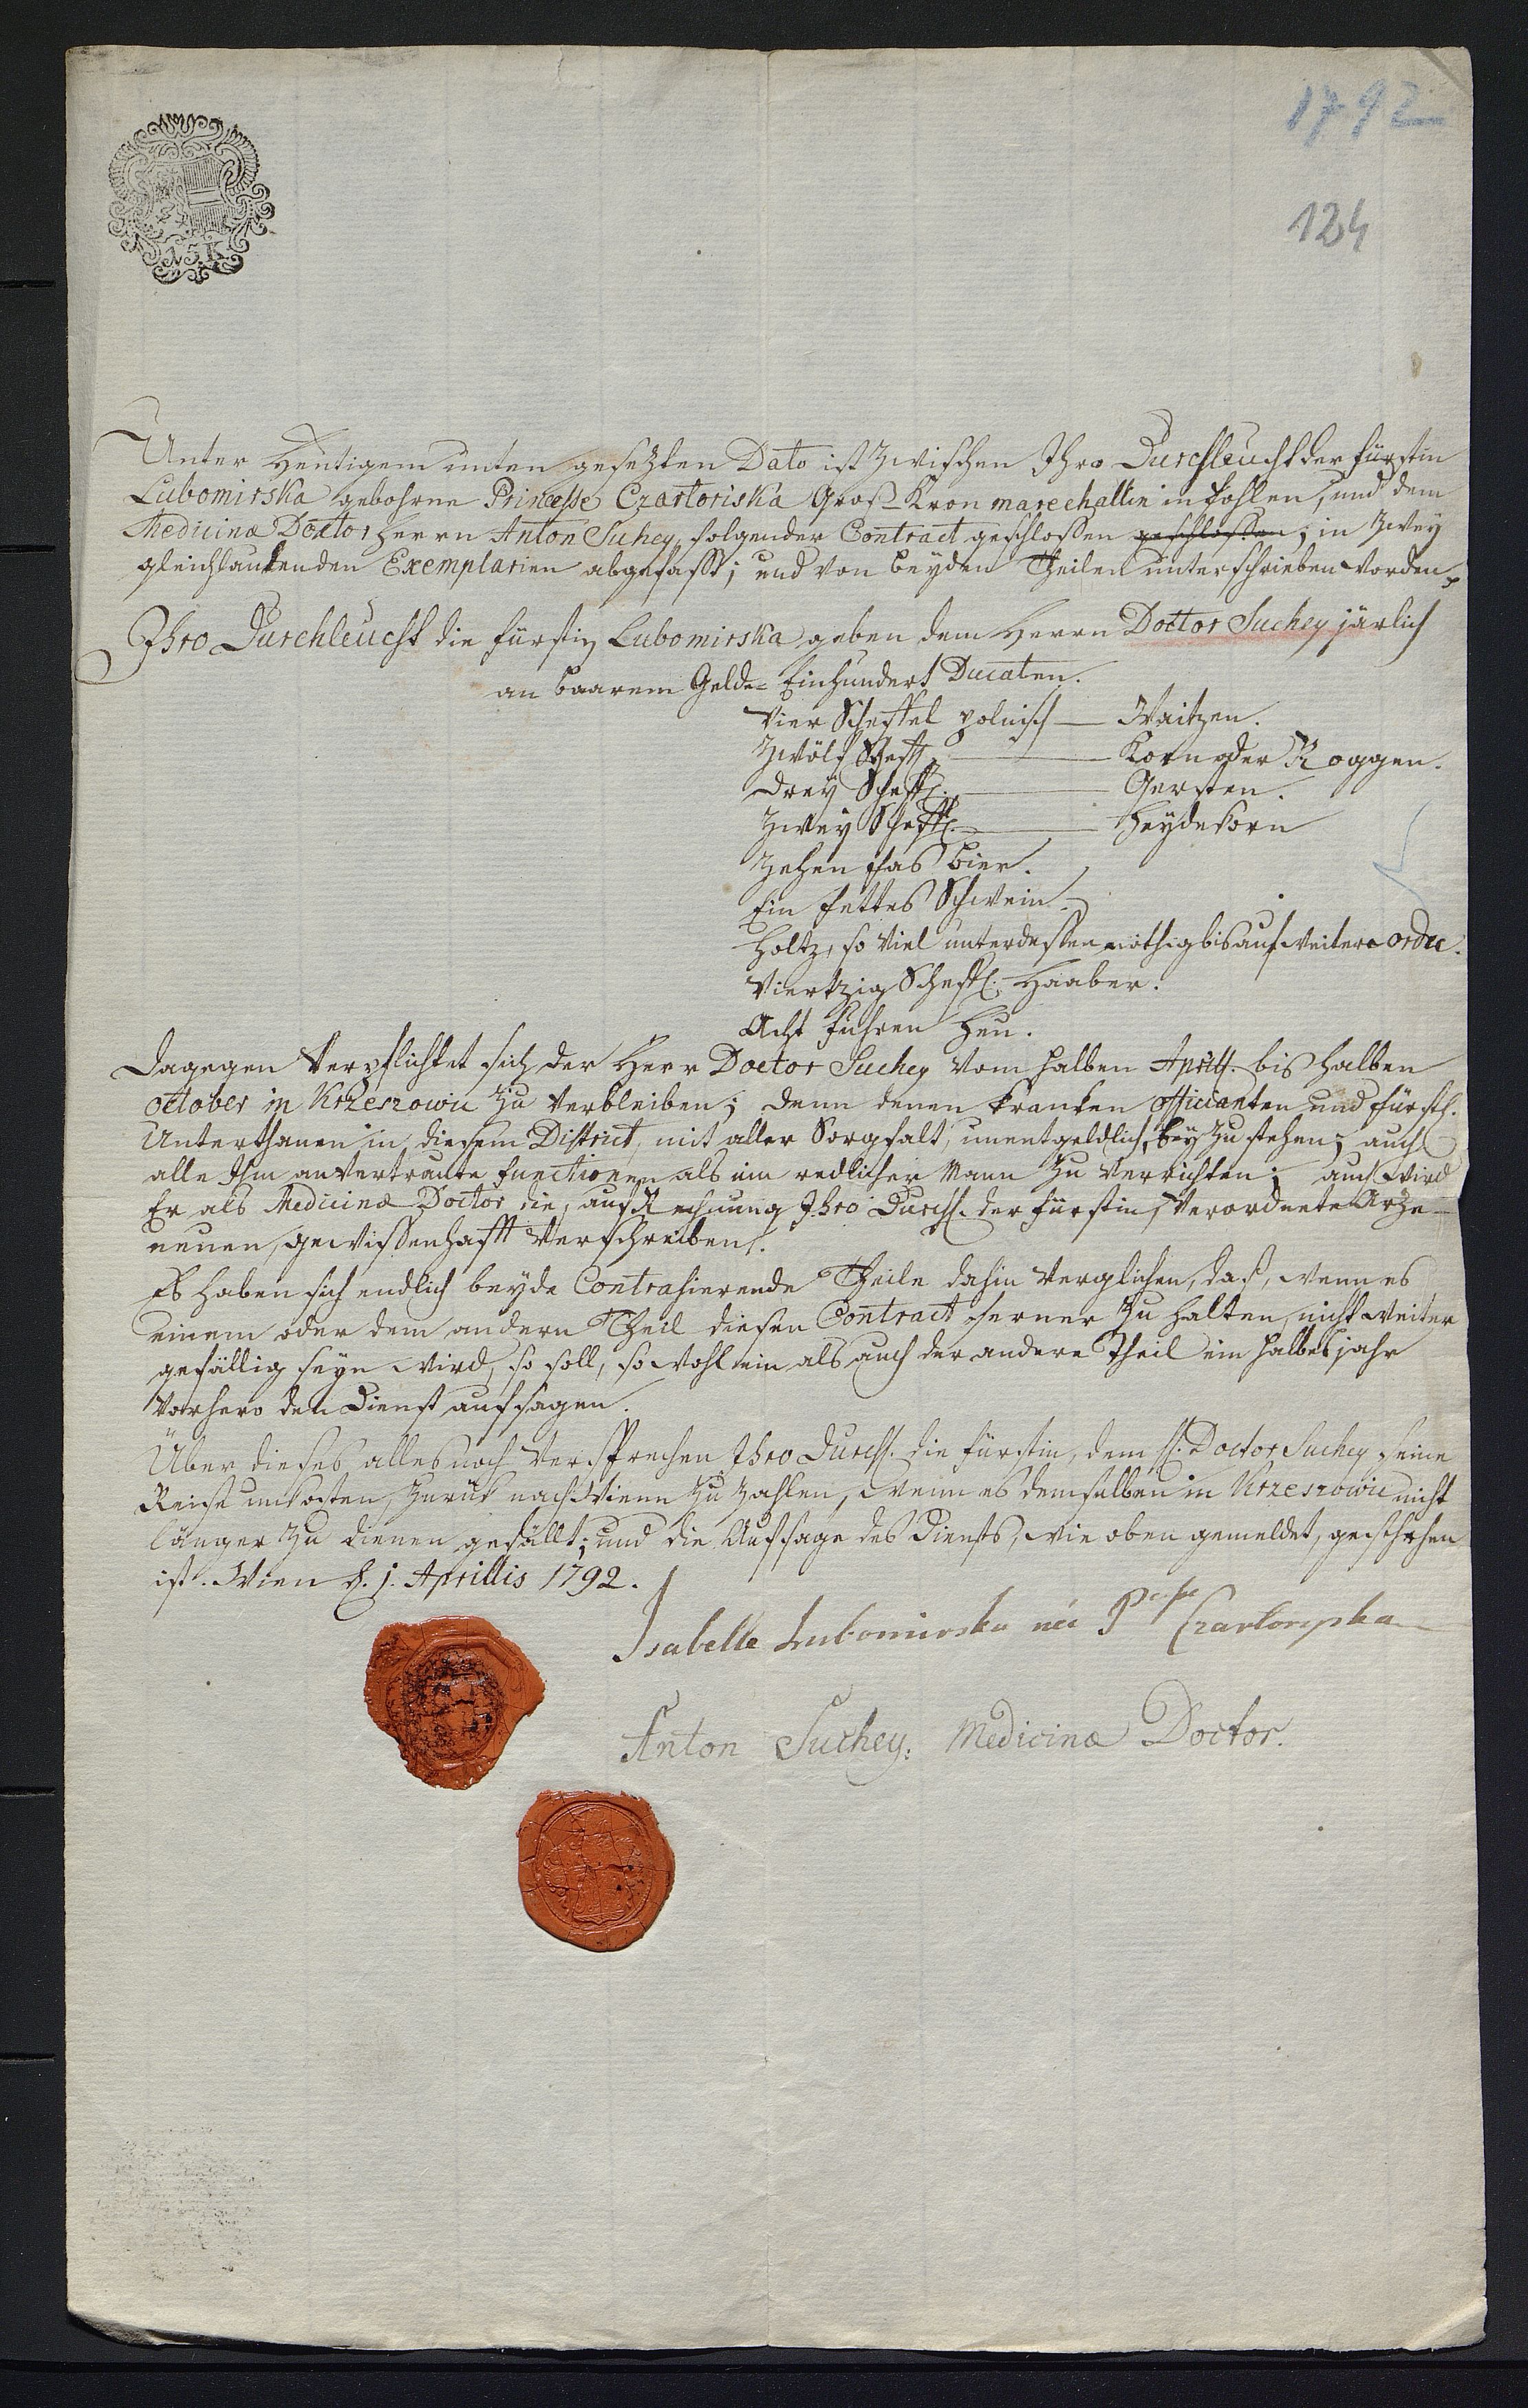 1792
124
15.K.
Unter Heutigem unten gesezten Dato ist zwischen Ihro Durchleucht der fürstin
Lubomirska gebohrne Princesse Czartoriska Groß-Kron marechallin in Pohlen, und dem
Medicinæ Doctor Herrn Anton Suhey, folgender Contract geschlossen geschlossen; in zwey
gleichlautenden Exemplarien abgefasst; und von beyden Theilen unterschrieben worden.
Ihro Durchleucht die fürstin Lubomirska geben dem Herrn Doctor Suchey järlich
an baarem Gelde= Einhundert Ducaten.
Vier Scheffel polnisch — Waitzen.
Zwölf Scheff. — Korn oder Roggen.
Drey Scheff. — Gersten.
Zwey Scheff. — Heydekorn
Zehen fas bier.
Ein fettes Schwein.
Holtz, so viel unterdessen nöthig bis auf weitere ordre.
Viertzig Scheff. Haaber.
Acht fuhren Heu.
Dagegen verpflichtet sich der Herr Doctor Suchey vom halben Aprill. bis halben
october in Krzeszowic zu verbleiben; denn denen kranken officianten und fürstl.
Unterthanen in diesem District, mit aller Sorgfalt, unentgeldlich, bey zu stehen; auch
alle Ihm anvertraute functionen als ein redlicher Mann zu verrichten; auch wird
Er als Medicinæ Doctor die, auf Rechnung Ihro Durchl. der fürstin, verordnete Arze-
neuen, gewissenhafft verschreiben.
Es haben sich endlich beyde Contrahierende Theile dahin verglichen, daß, wenn es
einem oder dem andern Theil diesen Contract ferner zu halten, nicht weiter
gefällig seyn wird, so soll, so wohl ein als auch der andere Theil ein halbes jahr
vorhero den Dienst aufsagen.
Über dieses alles noch versprechen Ihro Durchl. die fürstin, dem H. Doctor Suchey seine
Reise unkosten, zurük nach Wienn zu zahlen, wenn es demselben in Krzeszowic nicht
länger zu dienen gefällt; und die Aufsage des Diensts, wie oben gemeldet, geschehen
ist. Wien d. 1. Aprillis 1792.
Isabelle Lubomirska née Pcesse Czartoryska
Anton Suchey. Medicinæ Doctor.